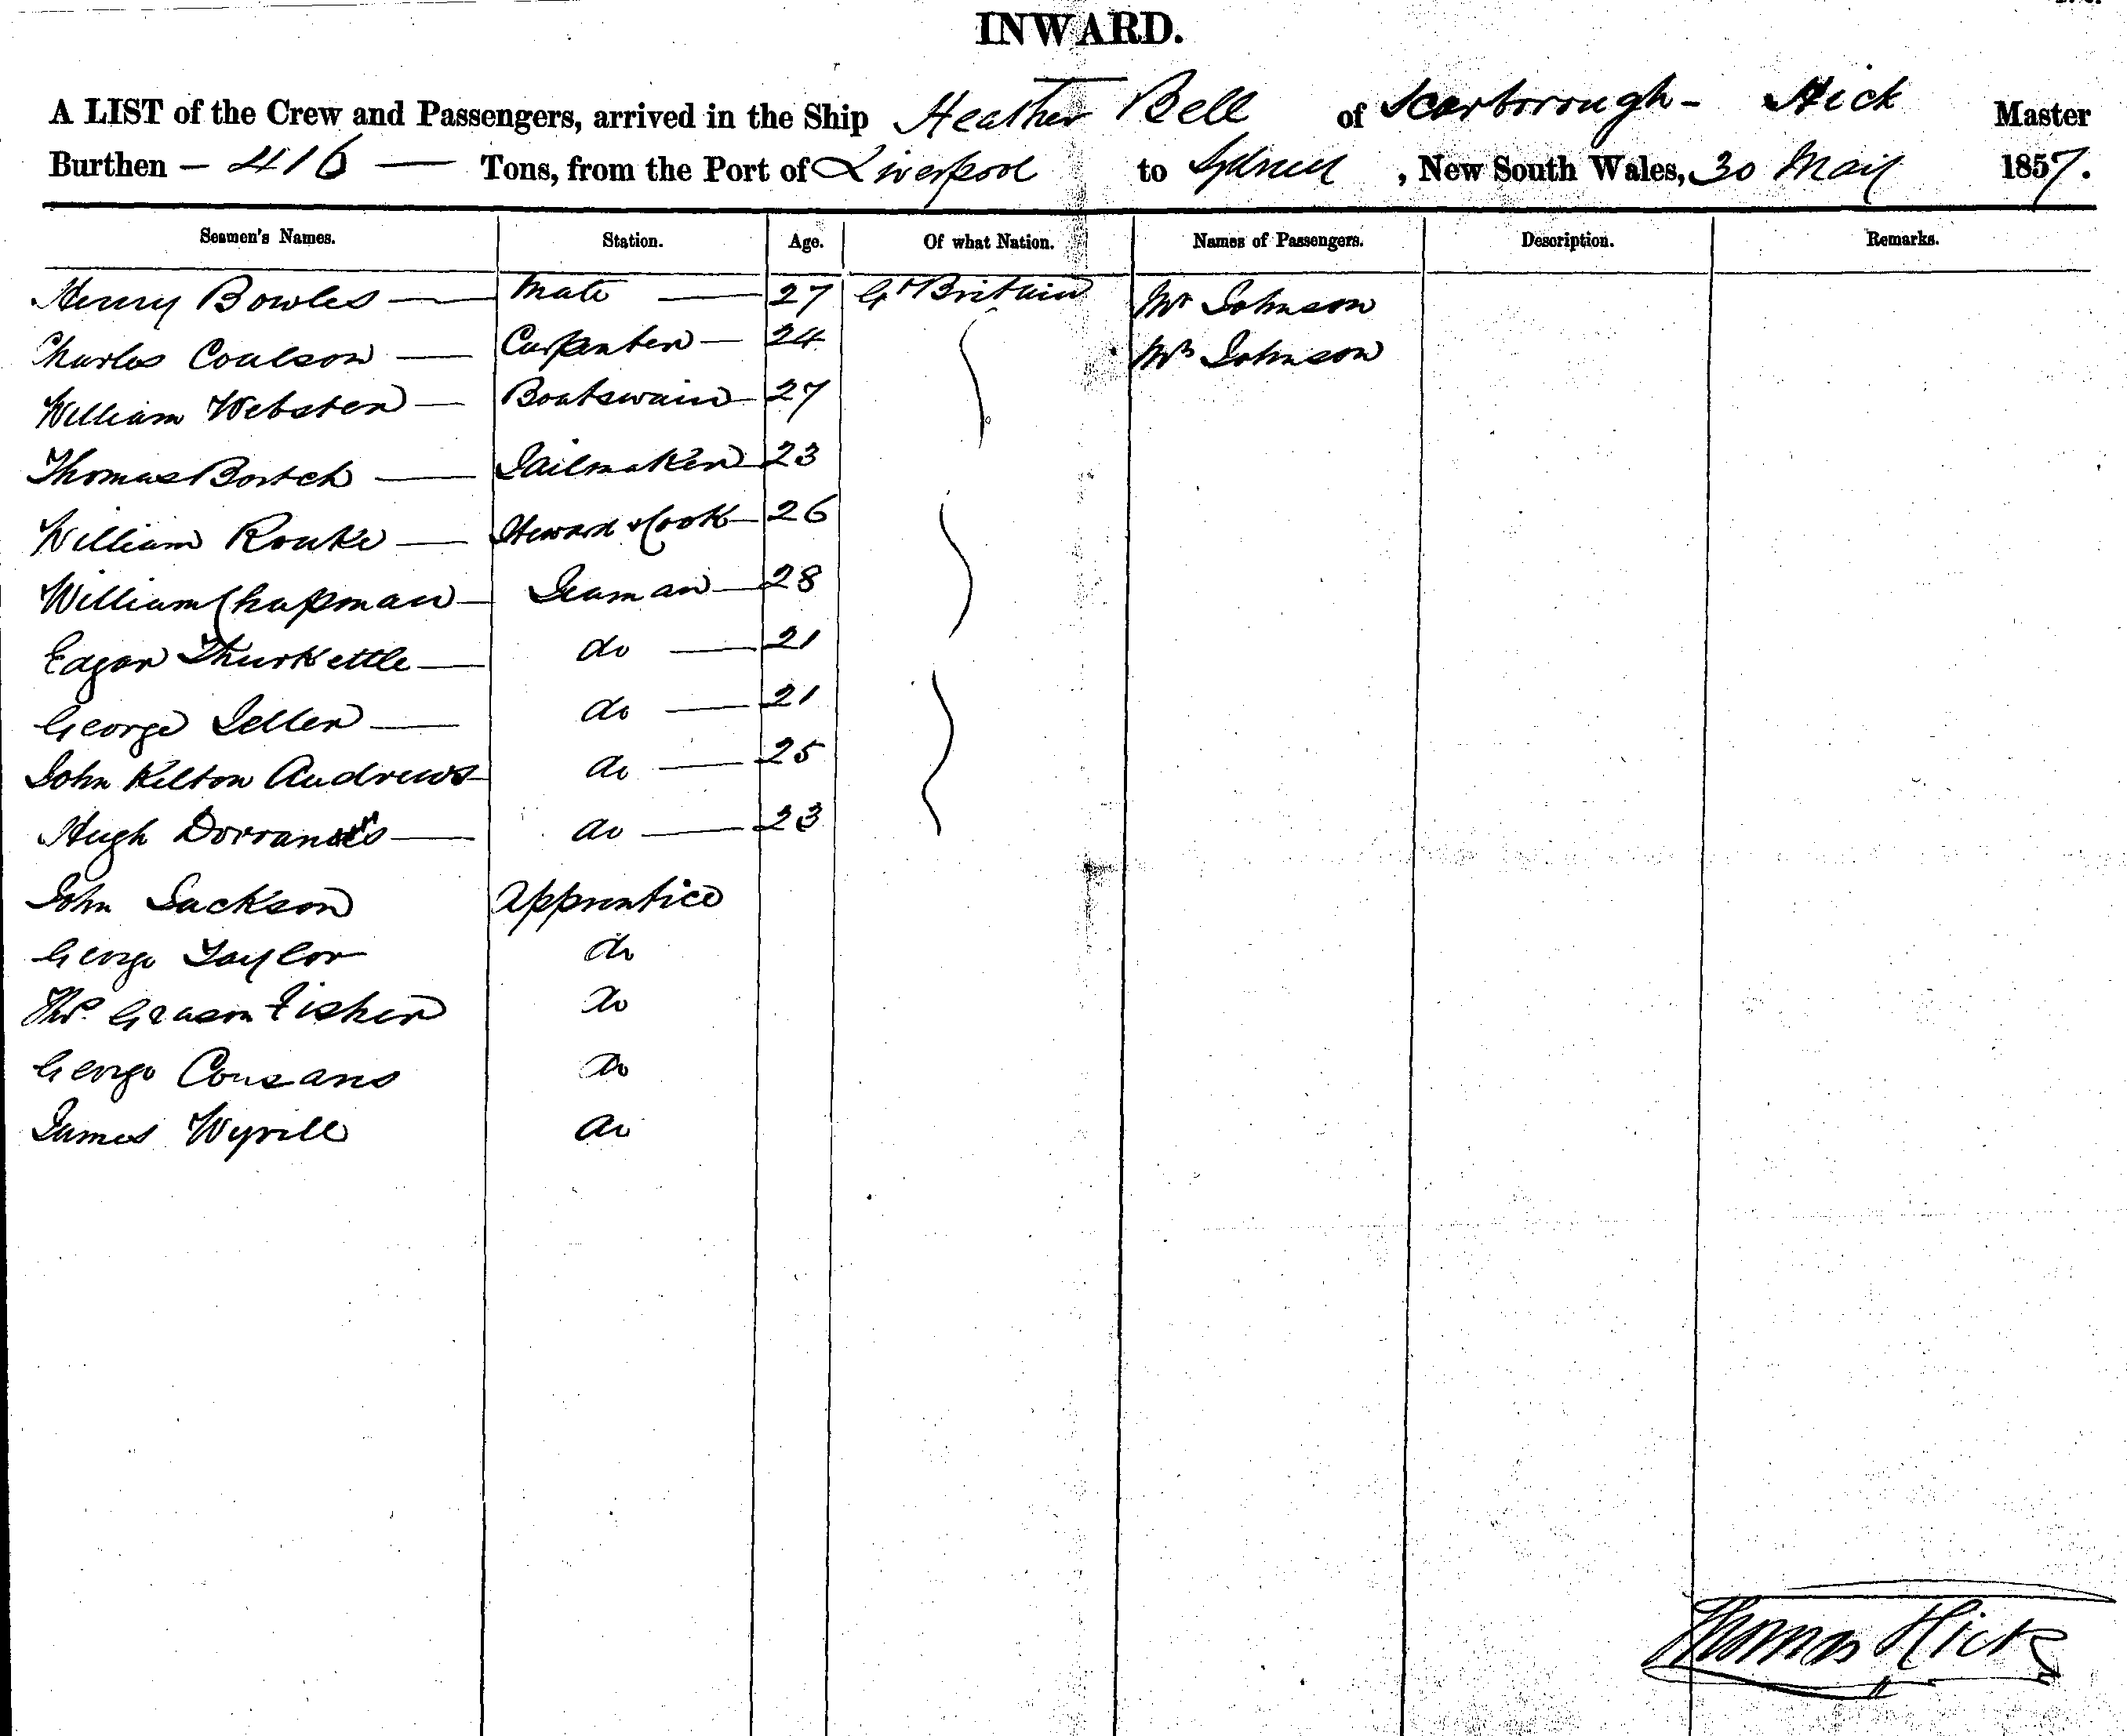 INWARD.
A LIST of the Crew and Passengers, arrived in the Ship Heather Bell of Scarborough - Hick Master
Burthen - 416 - Tons, from the Port of Liverpool to Sydney, New South Wales, 30 May 1857.
Seamen's Names. Station. Age. Of what Nation. Names of Passengers. Description. Remarks.
Henry Bowles — Mate — 27 Gt Britain Mr Johnson
Charles Coulson — Carpenter — 24 Mrs Johnson
William Webster — Boatswain — 27
Thomas Bortch — Sailmaker — 23
William Rouke — Steward & Cook — 26
William Chapman — Seaman — 28
Edgar Thurkettle — do — 21
George Seller — do — 21
John Kilton Andrews — do — 25
Hugh — do — 23
John Jackson Apprentice
George Taylor do
Thos. Fisher do
George Cousans do
James Wyrill do
Thomas Hick